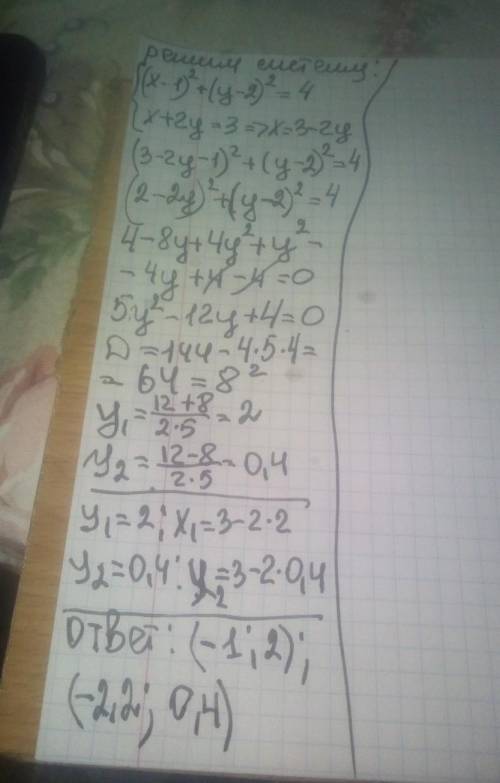 решим систему:
{(x-1)²+(y-2)²=4
{x+2y=3=>x=3-2y
(3-2y-1)²+(y-2)²=4
(2-2y)²+(y-2)²=4
4-8y+4y²+y²-
-4y+4-4=0
5y²-12y+4=0
D=144-4·5·4=
=64=8²
y₁=12+8/2·5=2
y₂=12-8/2·5=0,4
y₁=2; x₁=3-2·2
y₂=0,4: x₂=3-2·0,4
Ответ: (-1; 2);
(-2,2; 0,4)